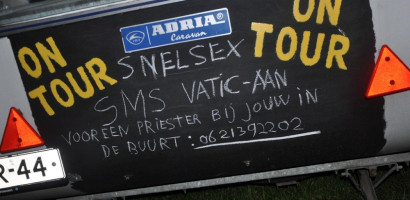 ON TOUR
ADRIA
Caravan
ON TOUR
SNELSEX
SMS VATIC-AAN
VOOR EEN PRIESTER BIJ JOUW IN
DE BUURT: 0621392202
R-44